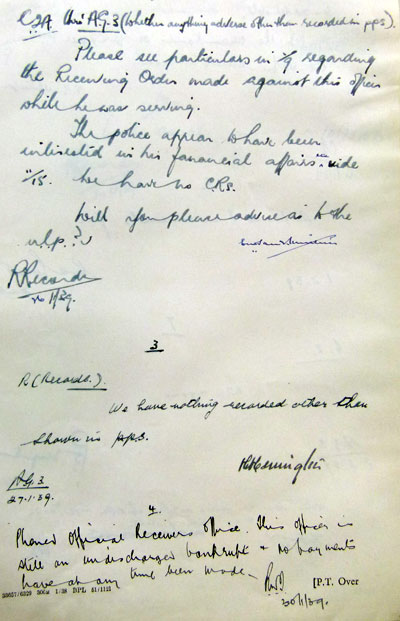 (Whether anything adverse other than recorded in p.p.s).
Please see particulars in 1/9 regarding
the Receiving Order made against this officer
while he was serving.
The police appear to have been
interested in his financial affairs vide
11/15. We have no C.Rs.
Will you please advise as to the
R Records
26/1/39.
3
R (Records.).
We have nothing recorded other than
shown in p.p.s.
AG.3
27.1.39.
4.
Phoned Official Receivers office. This officer is
still an undischarged bankrupt & no payments
have at any time been made.
[P.T. Over
30/1/39.